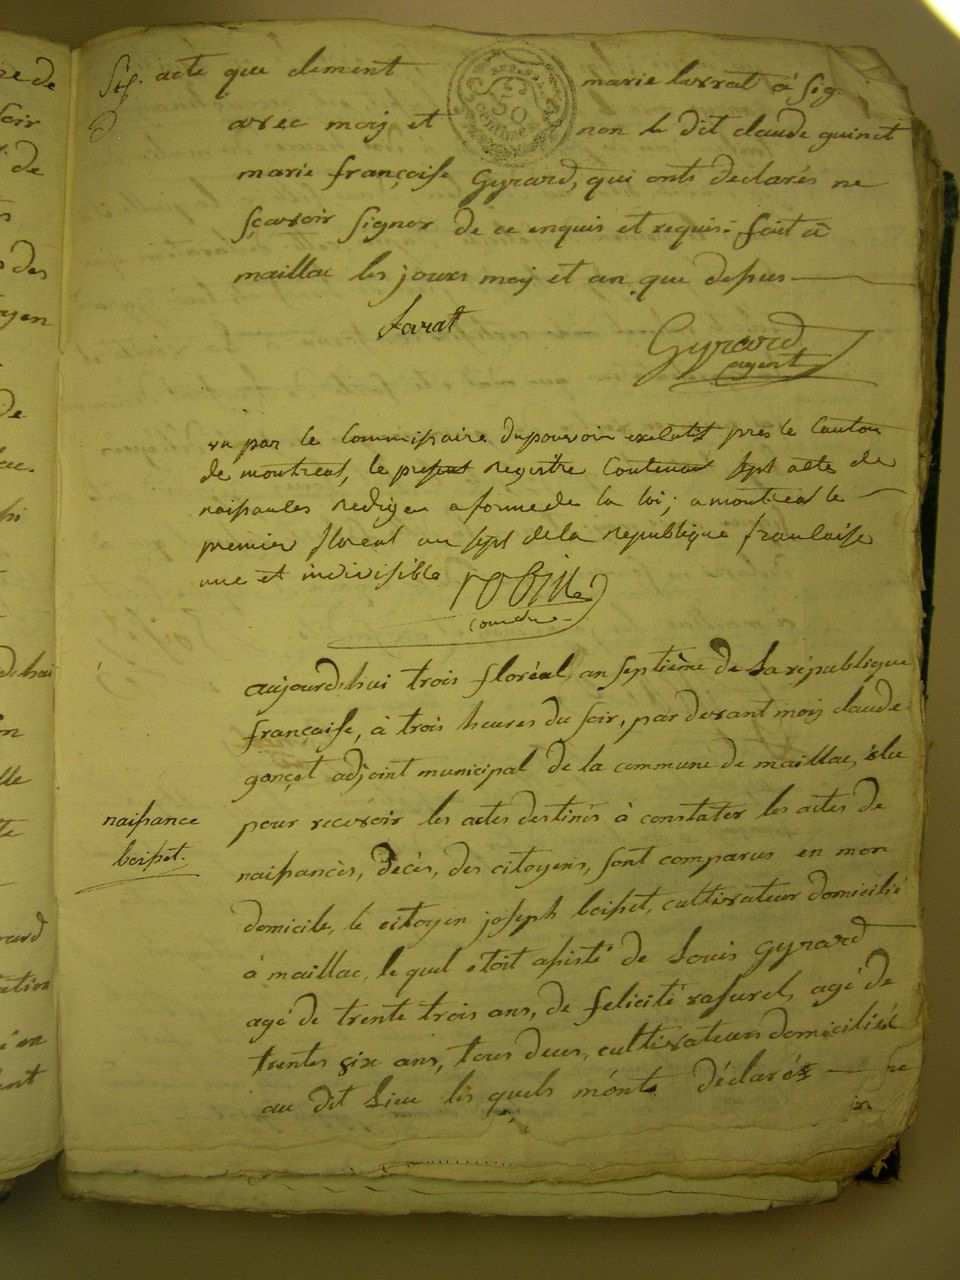 acte que clement marie lurrat à sig.
avec moy et non le dit claude guinet
marie françoise Gyrard, qui onts declarés ne
sçavoir signer de ce enquis et requis. fait à
maillac les jours moy et an que depus
Larat
Gyrard
agent
vu par le Commissaire dupouvoir exécutif près le Canton
de montreal, le present registre Contenant sept actes de
naissances rediger a forme de la loi; a montreal le
premier floreal an sept de la republique francaise
une et indivisible robin
comdre
aujourdhui trois floréal, an septième de La république
française, à trois heures du soir, par devant moy claude
gonçet adjoint municipal de la commune de maillac, élu
pour recevoir les actes destinés à constater les actes de
naissances, Décès, des citoyens, sont comparus en mon
domicile, le citoyen joseph boisset, cultivateur domicilié
à maillac, le quel étoit assisté de Louis Gyrard
agé de trente trois ans, de felicité rasurel, agé de
trentes six ans, tous deux, cultivateurs domiciliés
au dit Lieu les quels m'onts déclarés
naissance
boisset.
50
centimes